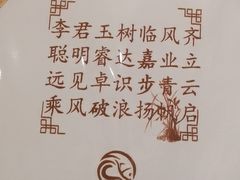 李君玉树临风齐
聪明睿达嘉业立
远见卓识步青云
乘风破浪扬帆启